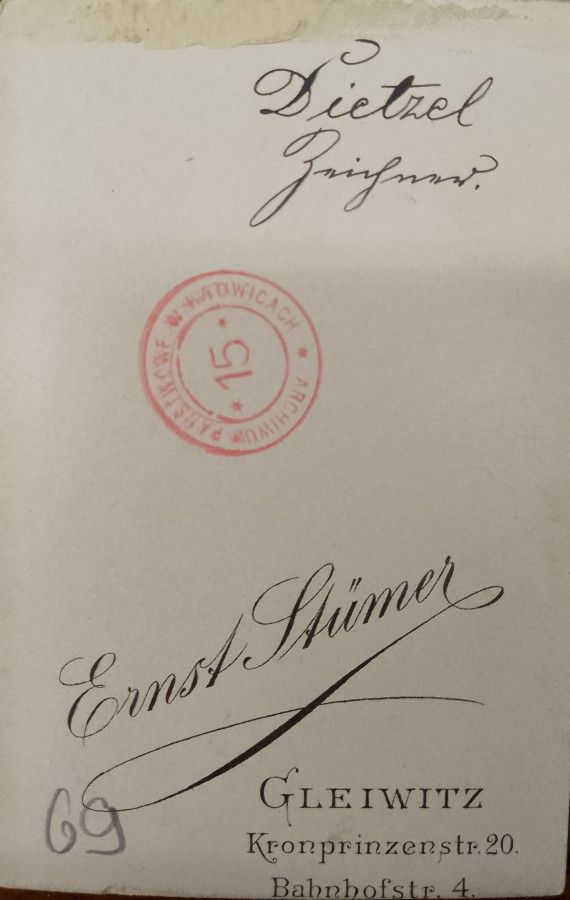 Dietzel
Zeichner.
ARCHIWUM PAŃSTWOWE W KATOWICACH
* 15 *
Ernst Stümer
69
GLEIWITZ
Kronprinzenstr. 20.
Bahnhofstr. 4.